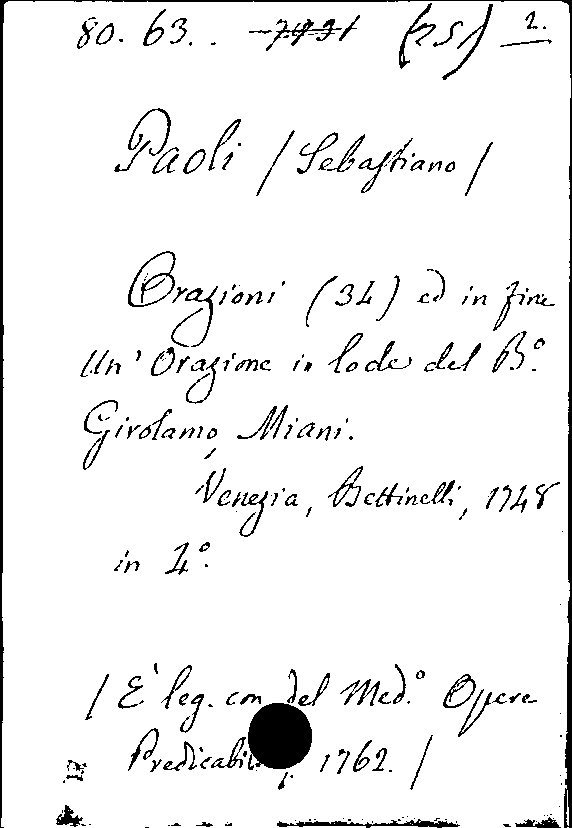 80. 63.. 7931 (251) 2.
Paoli / Sebastiano /
Orazioni (34) ed in fine
Un' Orazione in lode del B.º
Girolamo Miani.
Venezia, Bettinelli, 1748
in 4.º
/ È leg. con del Med.º Opere
1762. /